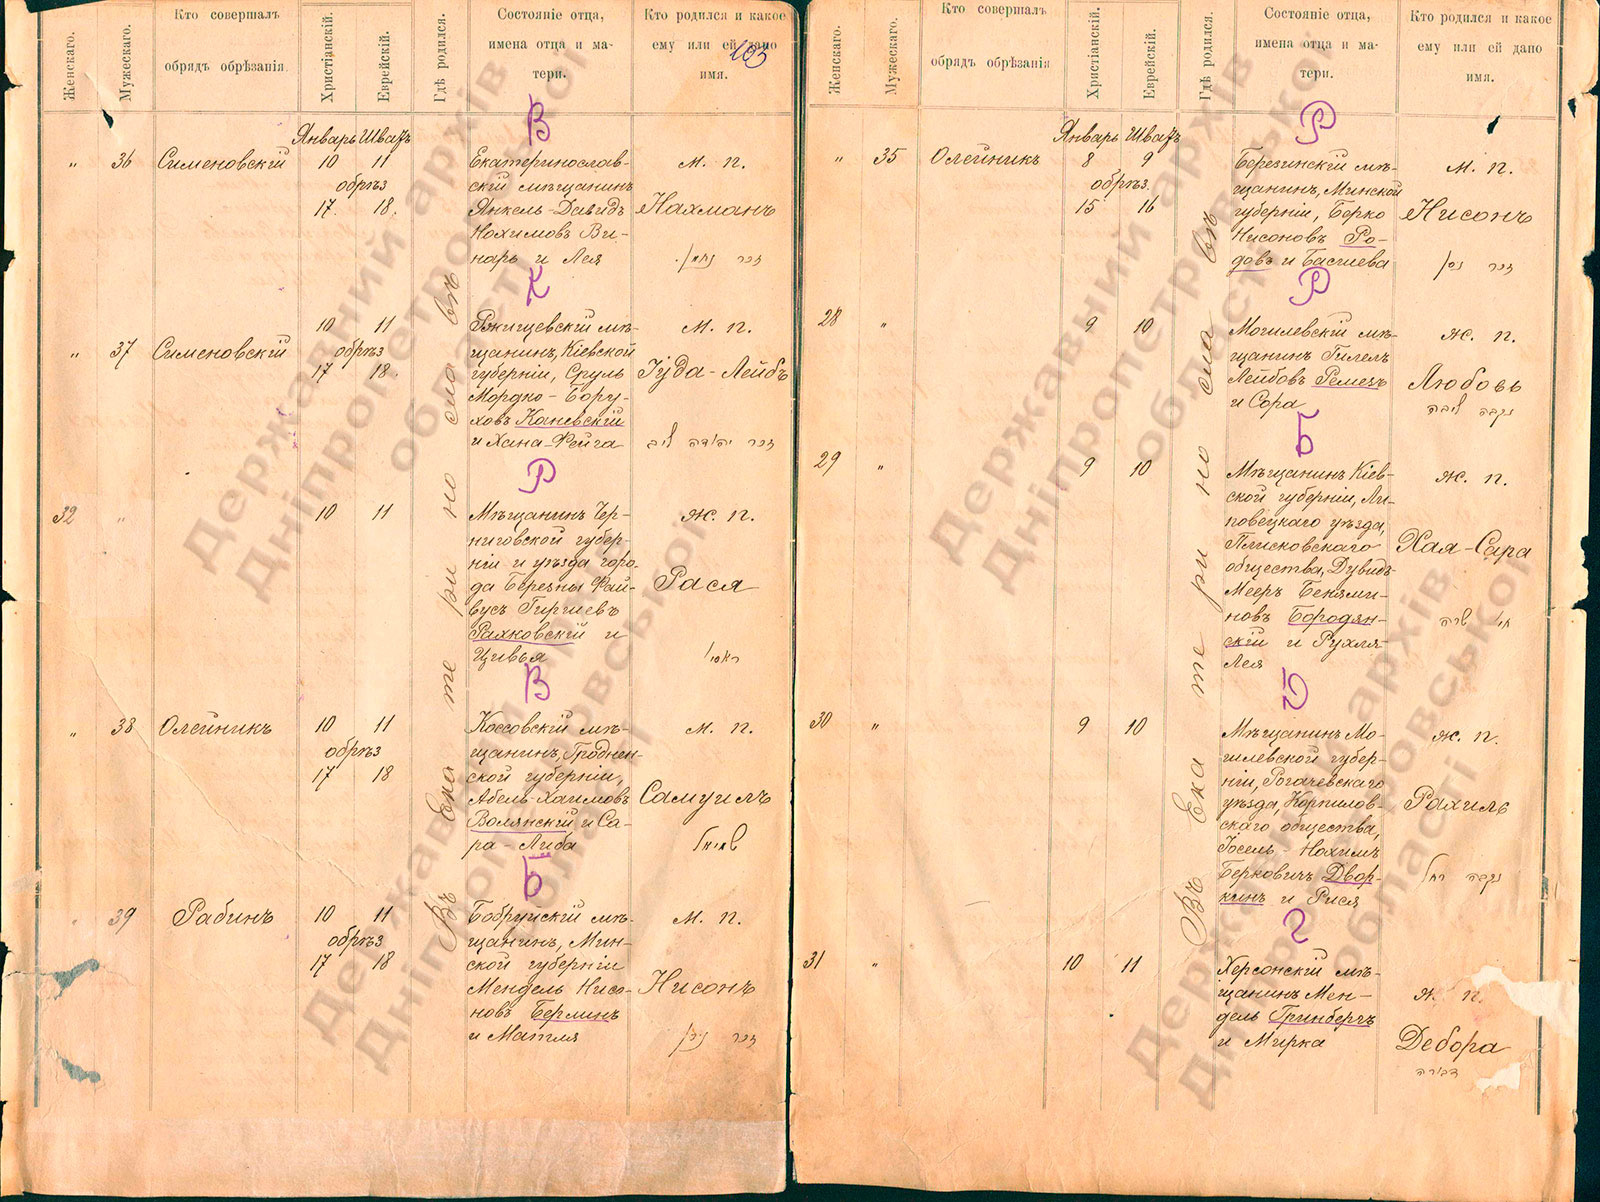 Женскаго.
Мужескаго.
Кто совершалъ
обрядъ обрѣзанія
Христіанскій.
Еврейскій.
Гдѣ родился.
Состояніе отца,
имена отца и ма-
тери.
Кто родился и какое
ему или ей дано
имя.
103
Въ Екатеринославѣ
В
Январь Шватъ
" 36 Сименовскій 10 11
обрѣз
17 18
Екатеринослав-
скій мѣщанинъ
Янкель-Давидъ
Нохимовъ Ви-
нарь и Лея
м. п.
Нахманъ
זכר נחמן
К
" 37 Сименовскій 10 11
обрѣз
17 18
Ржищевскій мѣ-
щанинъ, Кіевской
губерніи, Сруль
Мордко-Бору-
ховъ Каневскій
и Хана-Фейга
м. п.
Іуда-Лейбъ
זכר יהודה ליב
Р
32 " 10 11
Мѣщанинъ Чер-
ниговской губер-
ніи и уѣзда горо-
да Березны Фай-
вусъ Гиршевъ
Рахковскій и
Цивья
ж. п.
Рася
ראסי
В
" 38 Олейникъ 10 11
обрѣз
17 18
Коссовскій мѣ-
щанинъ, Гроднен-
ской губерніи,
Абель-Хаимовъ
Волянскій и Са-
ра-Либа
м. п.
Самуилъ
שמואל
Б
39 Рабинъ 10 11
обрѣз
17 18
Бобруйскій мѣ-
щанинъ, Мин-
ской губерніи
Мендель Нисо-
новъ Берлинъ
и Матля
м. п.
Нисонъ
זכר ניסן
Женскаго.
Мужескаго.
Кто совершалъ
обрядъ обрѣзанія
Христіанскій.
Еврейскій.
Гдѣ родился.
Состояніе отца,
имена отца и ма-
тери.
Кто родился и какое
ему или ей дано
имя.
Въ Екатеринославѣ
Р
Январь Шватъ
" 35 Олейникъ 8 9
обрѣз.
15 16
Березинскій мѣ-
щанинъ, Минской
губерніи, Берко
Нисоновъ Ро-
довъ и Басшева
м. п.
Нисонъ
זכר ניסן
Р
28 " 9 10
Могилевскій мѣ-
щанинъ Гилель
Лейбовъ Ремезъ
и Сора
ж. п.
Любовь
נקבה ליבה
Б
29 " 9 10
Мѣщанинъ Кіев-
ской губерніи, Ли-
повецкаго уѣзда,
Плисковскаго
общества, Дувидъ-
Мееръ Беньями-
новъ Бородян-
скій и Рухля-
Лея
ж. п.
Хая-Сара
חי' שרה
Д
30 " 9 10
Мѣщанинъ Мо-
гилевской губер-
ніи, Рогачевскаго
уѣзда, Корпилов-
скаго общества,
Іосель-Нохимъ
Берковичъ Двор-
кинъ и Рися
ж. п.
Рахиль
נקבה רחל
Г
31 " 10 11
Херсонскій мѣ-
щанинъ Мен-
дель Гринбергъ
и Мирка
ж. п.
Дебора
דבורה
Державний архів
Дніпропетровської
області